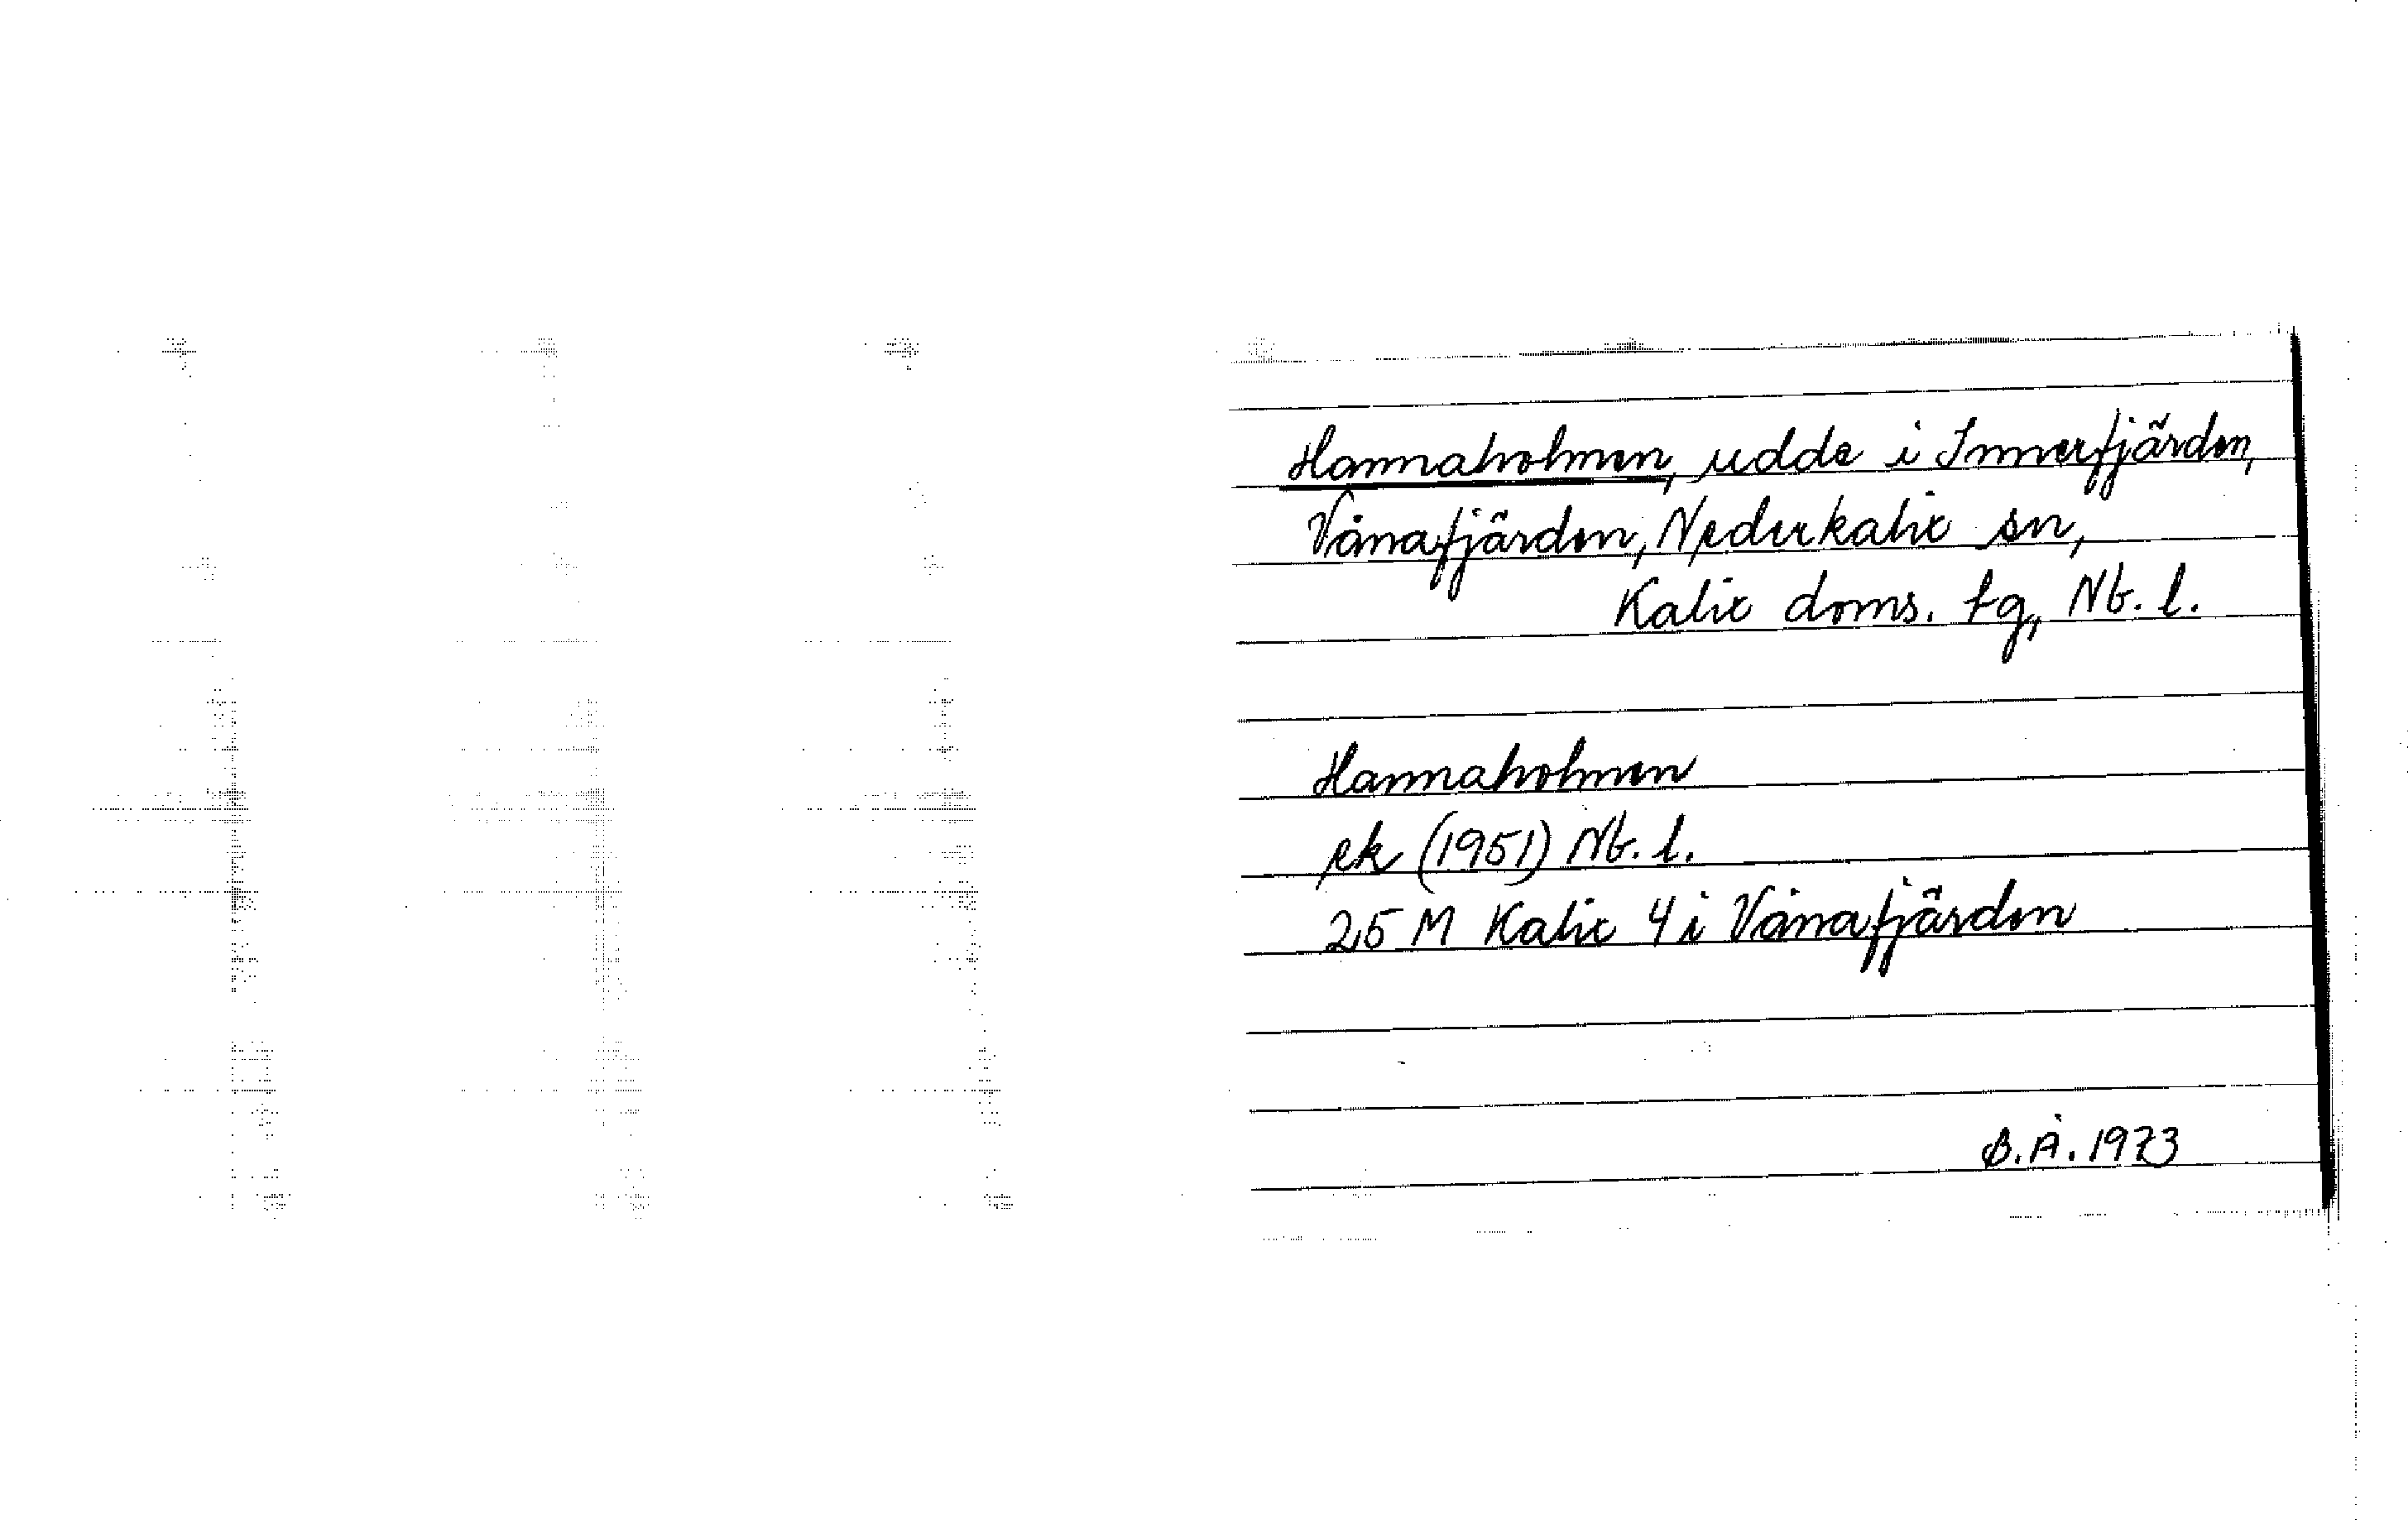 Hannaholmen, udde i Innerfjärden,
Vånafjärden, Nederkalix sn,
Kalix doms. tg, Nb. l.
Hannaholmen
ek (1951) Nb. l.
25 M Kalix 4 i Vånafjärden
B.Å. 1973